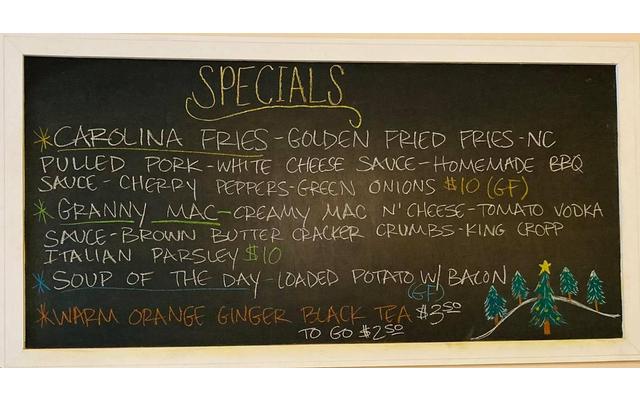 SPECIALS
*CAROLINA FRIES-GOLDEN FRIED FRIES-NC
PULLED PORK-WHITE CHEESE SAUCE-HOMEMADE BBQ
SAUCE-CHERRY PEPPERS-GREEN ONIONS $10 (GF)
*GRANNY MAC-CREAMY MAC N' CHEESE-TOMATO VODKA
SAUCE-BROWN BUTTER CRACKER CRUMBS-KING CROPP
ITALIAN PARSLEY $10
*SOUP OF THE DAY-LOADED POTATO W/ BACON
(GF)
*WARM ORANGE GINGER BLACK TEA $3.50
TO GO $2.50